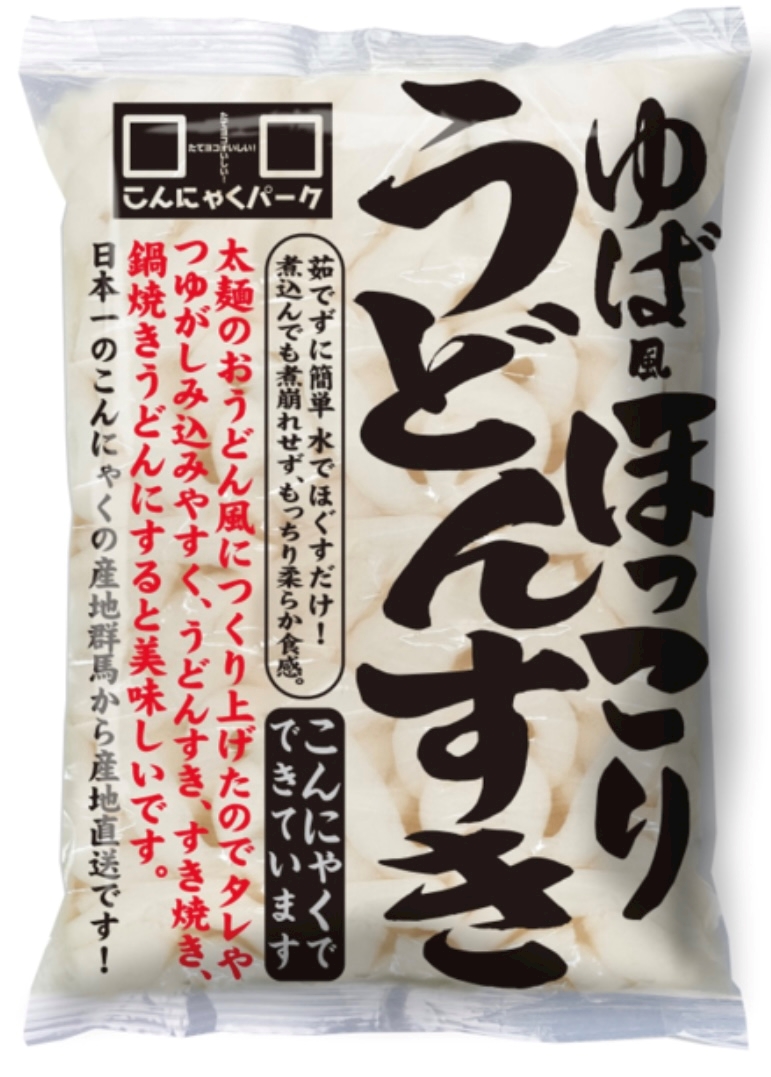 ゆば風ほっこり
うどんすき
たてヨコおいしい!
たてヨコおいしい!
こんにゃくパーク
茹でずに簡単 水でほぐすだけ!
煮込んでも煮崩れせず、もっちり柔らか食感。
こんにゃくで
できています
太麺のおうどん風につくり上げたのでタレや
つゆがしみ込みやすく、うどんすき、すき焼き、
鍋焼きうどんにすると美味しいです。
日本一のこんにゃくの産地群馬から産地直送です!